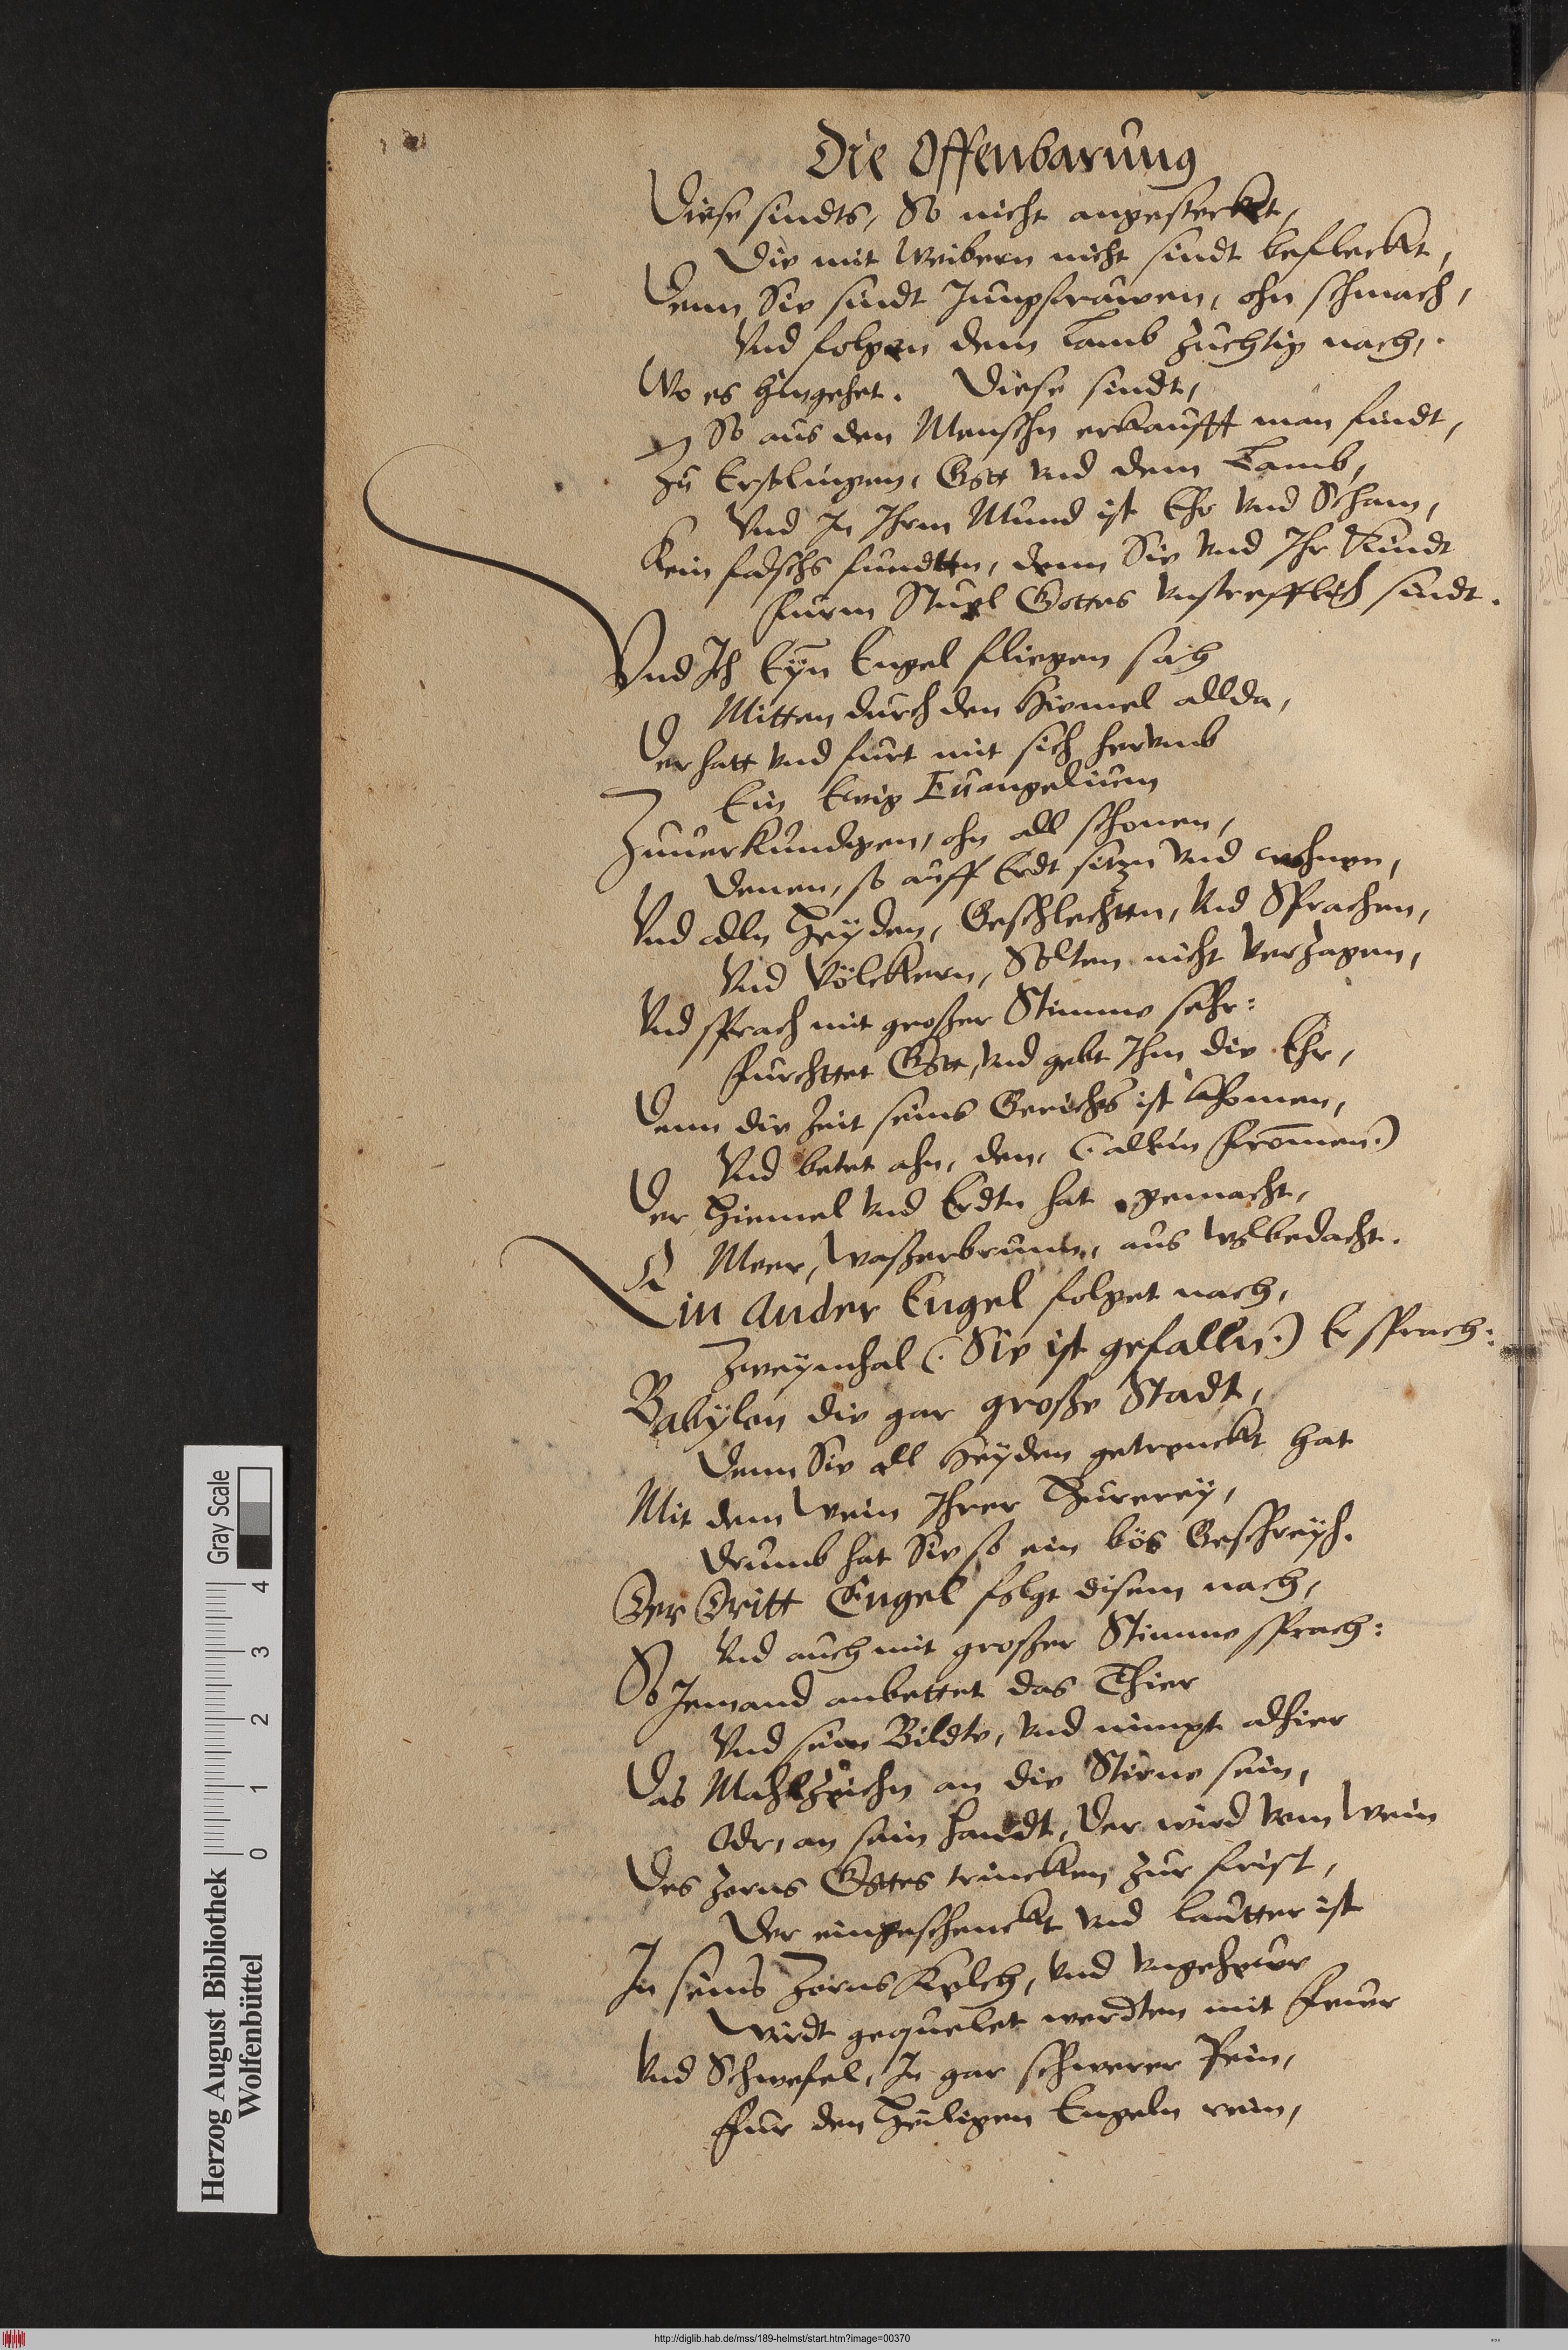 Die Offenbarung
Diese sindts, So nicht angesteckt,
Die mit Weibern nicht sindt befleckt,
Denn Sie sindt Jungfrawen, ohn schmach,
Vnd folgen dem Lamb zuchtig nach,
Wo es hingehet. Diese sindt,
So aus den Menschn erkaufft man findt,
Zu Erstlingen, Gott vnd dem Lamb,
Vnd In Ihrm Mund ist Ehr vnd Scham,
Kein falschs fundtn, denn Sie vnd Ihr Kindt
Furm Stuel Gottes vnstrefflich sindt.
Vnd Ich Eyn Engel fliegen sah
Mitten durch den Himmel allda,
Der hatt vnd furt mit sich herumb
Ein Ewig Euangelium
Zuuerkundigen, ohn all schonen,
Denen, so auff Erdt sitzn vnd wohnen,
Vnd alln Heyden, Geschlechttn, vnd Sprachen,
Vnd Völckern, Solten nicht verzagen,
Vnd sprach mit großer Stimme sehr:
Furchttet Gott, vnd gebt Ihm die Ehr,
Denn die Zeit seins Gerichts ist khomen,
Vnd betet ahn, den, (allein fromen)
Der Himmel vnd Erdtn hat gemacht,
Meer, Waßerbrunn, aus wolbedacht.
Ein Ander Engel folget nach,
Zweymhal (Sie ist gefalln) Er sprach:
Babylon die gar große Stadt,
Denn Sie all Heyden getrenckt hat
Mit dem Wein Ihrer Hurerey,
Drumb hat Sie so ein bös Geschreyh.
Der Dritt Engel folgt disem nach,
Vnd auch mit großer Stimme sprach:
So Jemand anbettet das Thier
Vnd sein Bildte, vnd nimpt alhier
Das Mahlzeichn an die Stirne sein,
Odr, an sein Handt, Der wird vom Wein
Des Zorns Gottes trincken zur frist,
Der eingeschenckt vnd lautter ist
In seins Zorns Kelch, vnd vngehewr
Wirdt gequelet werdten mit Fewr
Vnd Schwefel, In gar schwerer Pein,
Fur den Heiligen Engeln rein,
Herzog August Bibliothek
Wolfenbüttel
0 1 2 3 4
Gray Scale
http://diglib.hab.de/mss/189-helmst/start.htm?image=00370